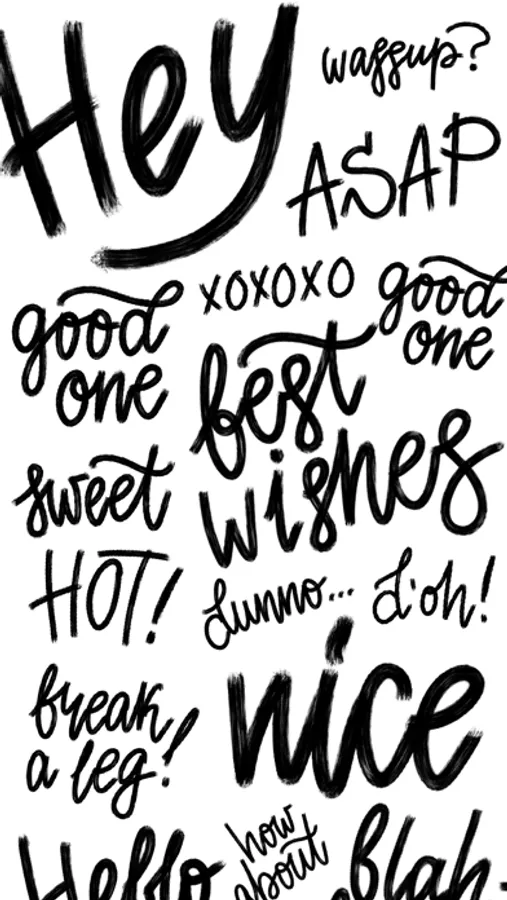 Hey
wassup?
ASAP
good
one
xoxoxo
good
one
best
wishes
sweet
HOT!
dunno...
d'oh!
break
a leg!
nice
Hello
how
about
blah-